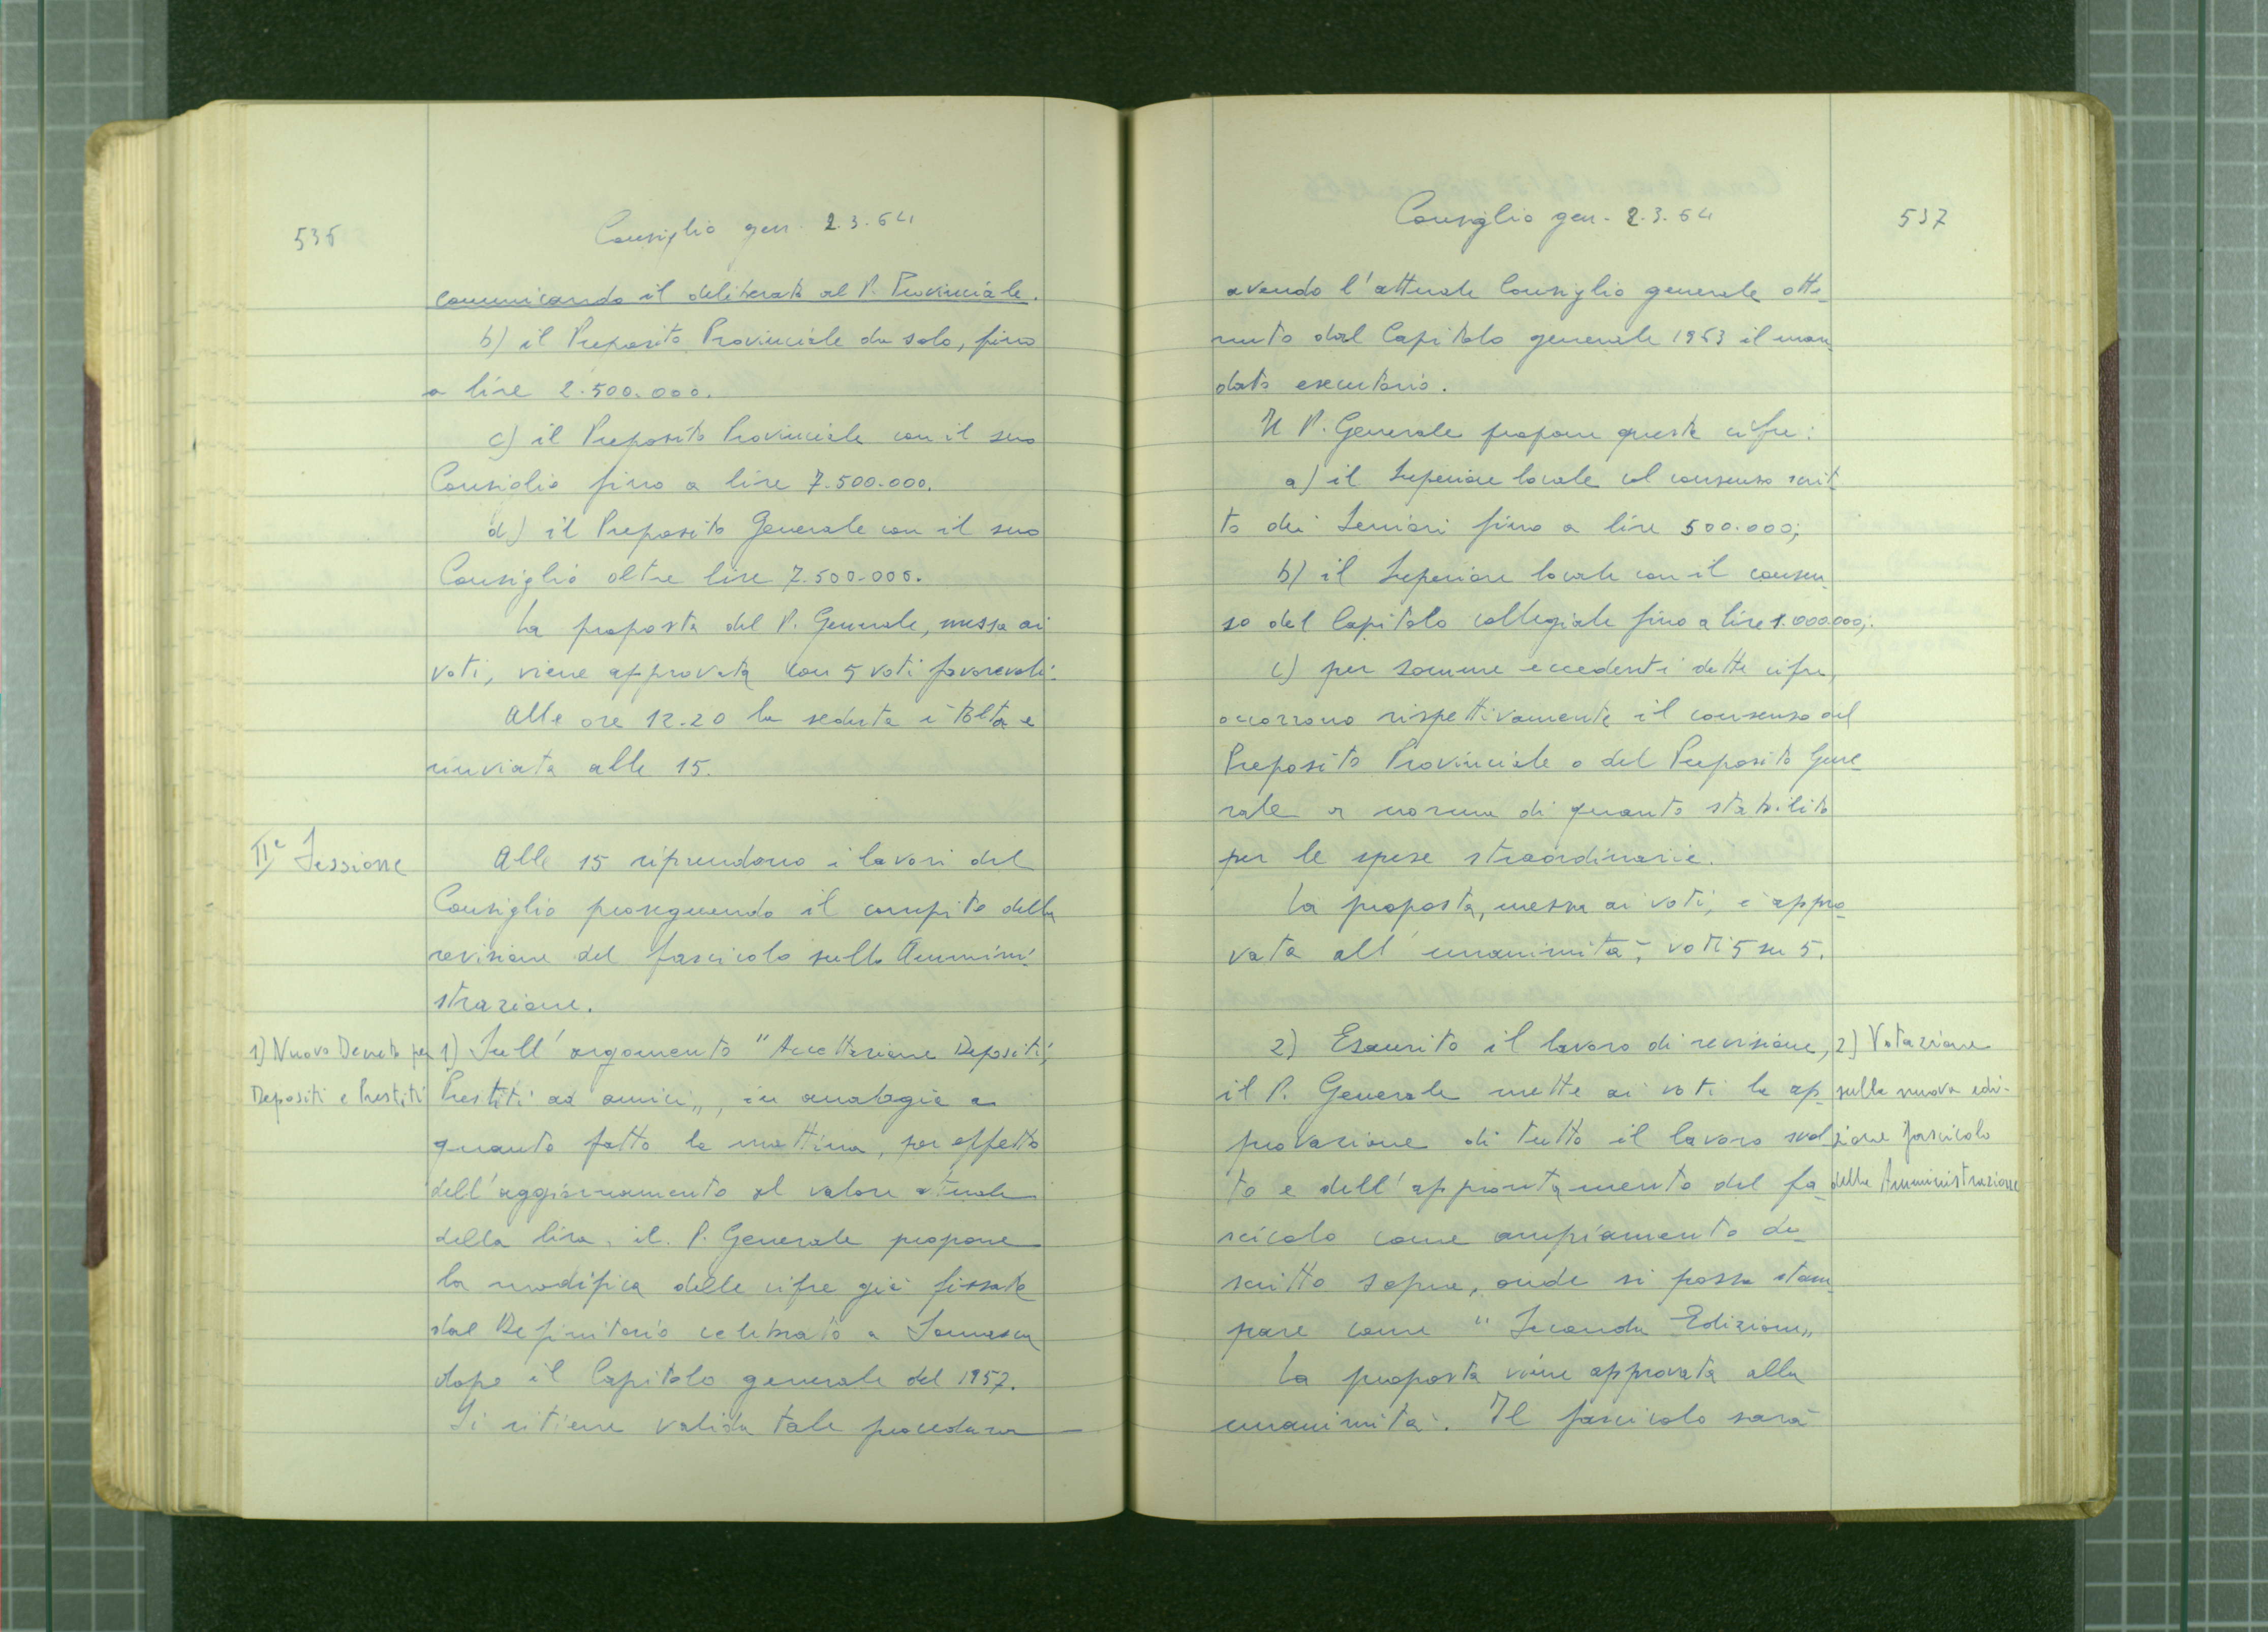 536
Consiglio gen. 2.3.64
comunicando il deliberato al P. Provinciale.
b) il Preposito Provinciale da solo, fino
a lire 2.500.000.
c) il Preposito Provinciale con il suo
Consiglio fino a lire 7.500.000.
d) il Preposito Generale con il suo
Consiglio oltre lire 7.500.000.
La proposta del P. Generale, messa ai
voti, viene approvata con 5 voti favorevoli.
Alle ore 12.20 la seduta è tolta e
rinviata alle 15.
IIª Sessione
Alle 15 riprendono i lavori del
Consiglio proseguendo il compito della
revisione del fascicolo sulla Ammini-
strazione.
1) Nuovo Decreto per
Depositi e Prestiti
1) Sull'argomento "Accettazione Depositi,
Prestiti ad amici", in analogia a
quanto fatto la mattina, per effetto
dell'aggiornamento al valore attuale
della lira, il P. Generale propone
la modifica delle cifre già fissate
dal Definitorio celebrato a Somasca
dopo il Capitolo generale del 1957.
Si ritiene valida tale procedura
537
Consiglio gen. 2.3.64
avendo l'attuale Consiglio generale otte-
nuto dal Capitolo generale 1963 il man-
dato esecutorio.
Il P. Generale propone queste cifre:
a) il Superiore locale col consenso scrit-
to dei Seniori fino a lire 500.000;
b) il Superiore locale con il consen-
so del Capitolo collegiale fino a lire 1.000.000;
c) per somme eccedenti dette cifre,
occorrono rispettivamente il consenso del
Preposito Provinciale o del Preposito Gene-
rale a norma di quanto stabilito
per le spese straordinarie.
La proposta, messa ai voti, è appro-
vata all'unanimità; voti 5 su 5.
2) Esaurito il lavoro di revisione,
il P. Generale mette ai voti la ap-
provazione di tutto il lavoro svol-
to e dell'approntamento del fa-
scicolo come ampiamento de-
scritto sopra, onde si possa stam-
pare come "Seconda Edizione"
La proposta viene approvata alla
unanimità. Il fascicolo sarà
2) Votazione
sulla nuova edi-
zione fascicolo
della Amministrazione